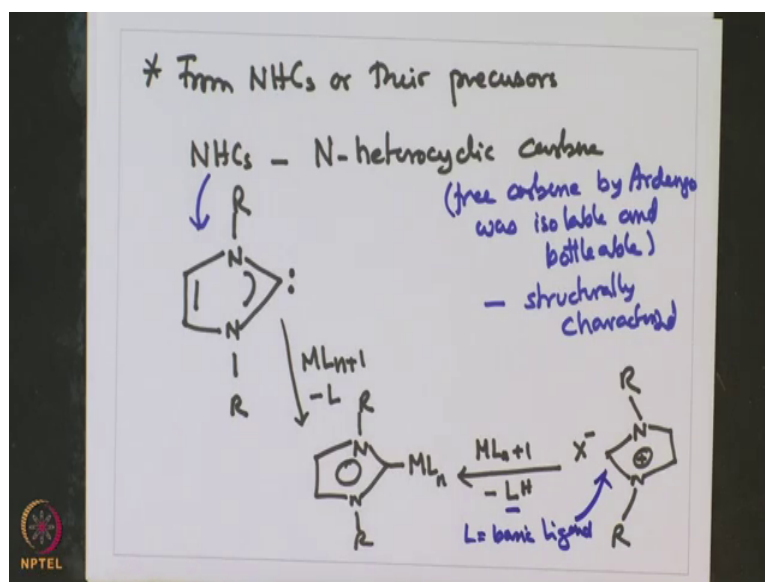 * From NHCs or their precusors
NHCs - N-heterocyclic carbene
(free carbene by Arduengo
was isolable and
bottleable)
- structurally
characterized
R
N
:
N
R
MLn+1
-L
R
N
MLn
N
R
MLn+1
- LH
L = basic ligand
X-
R
N
+
N
R
NPTEL